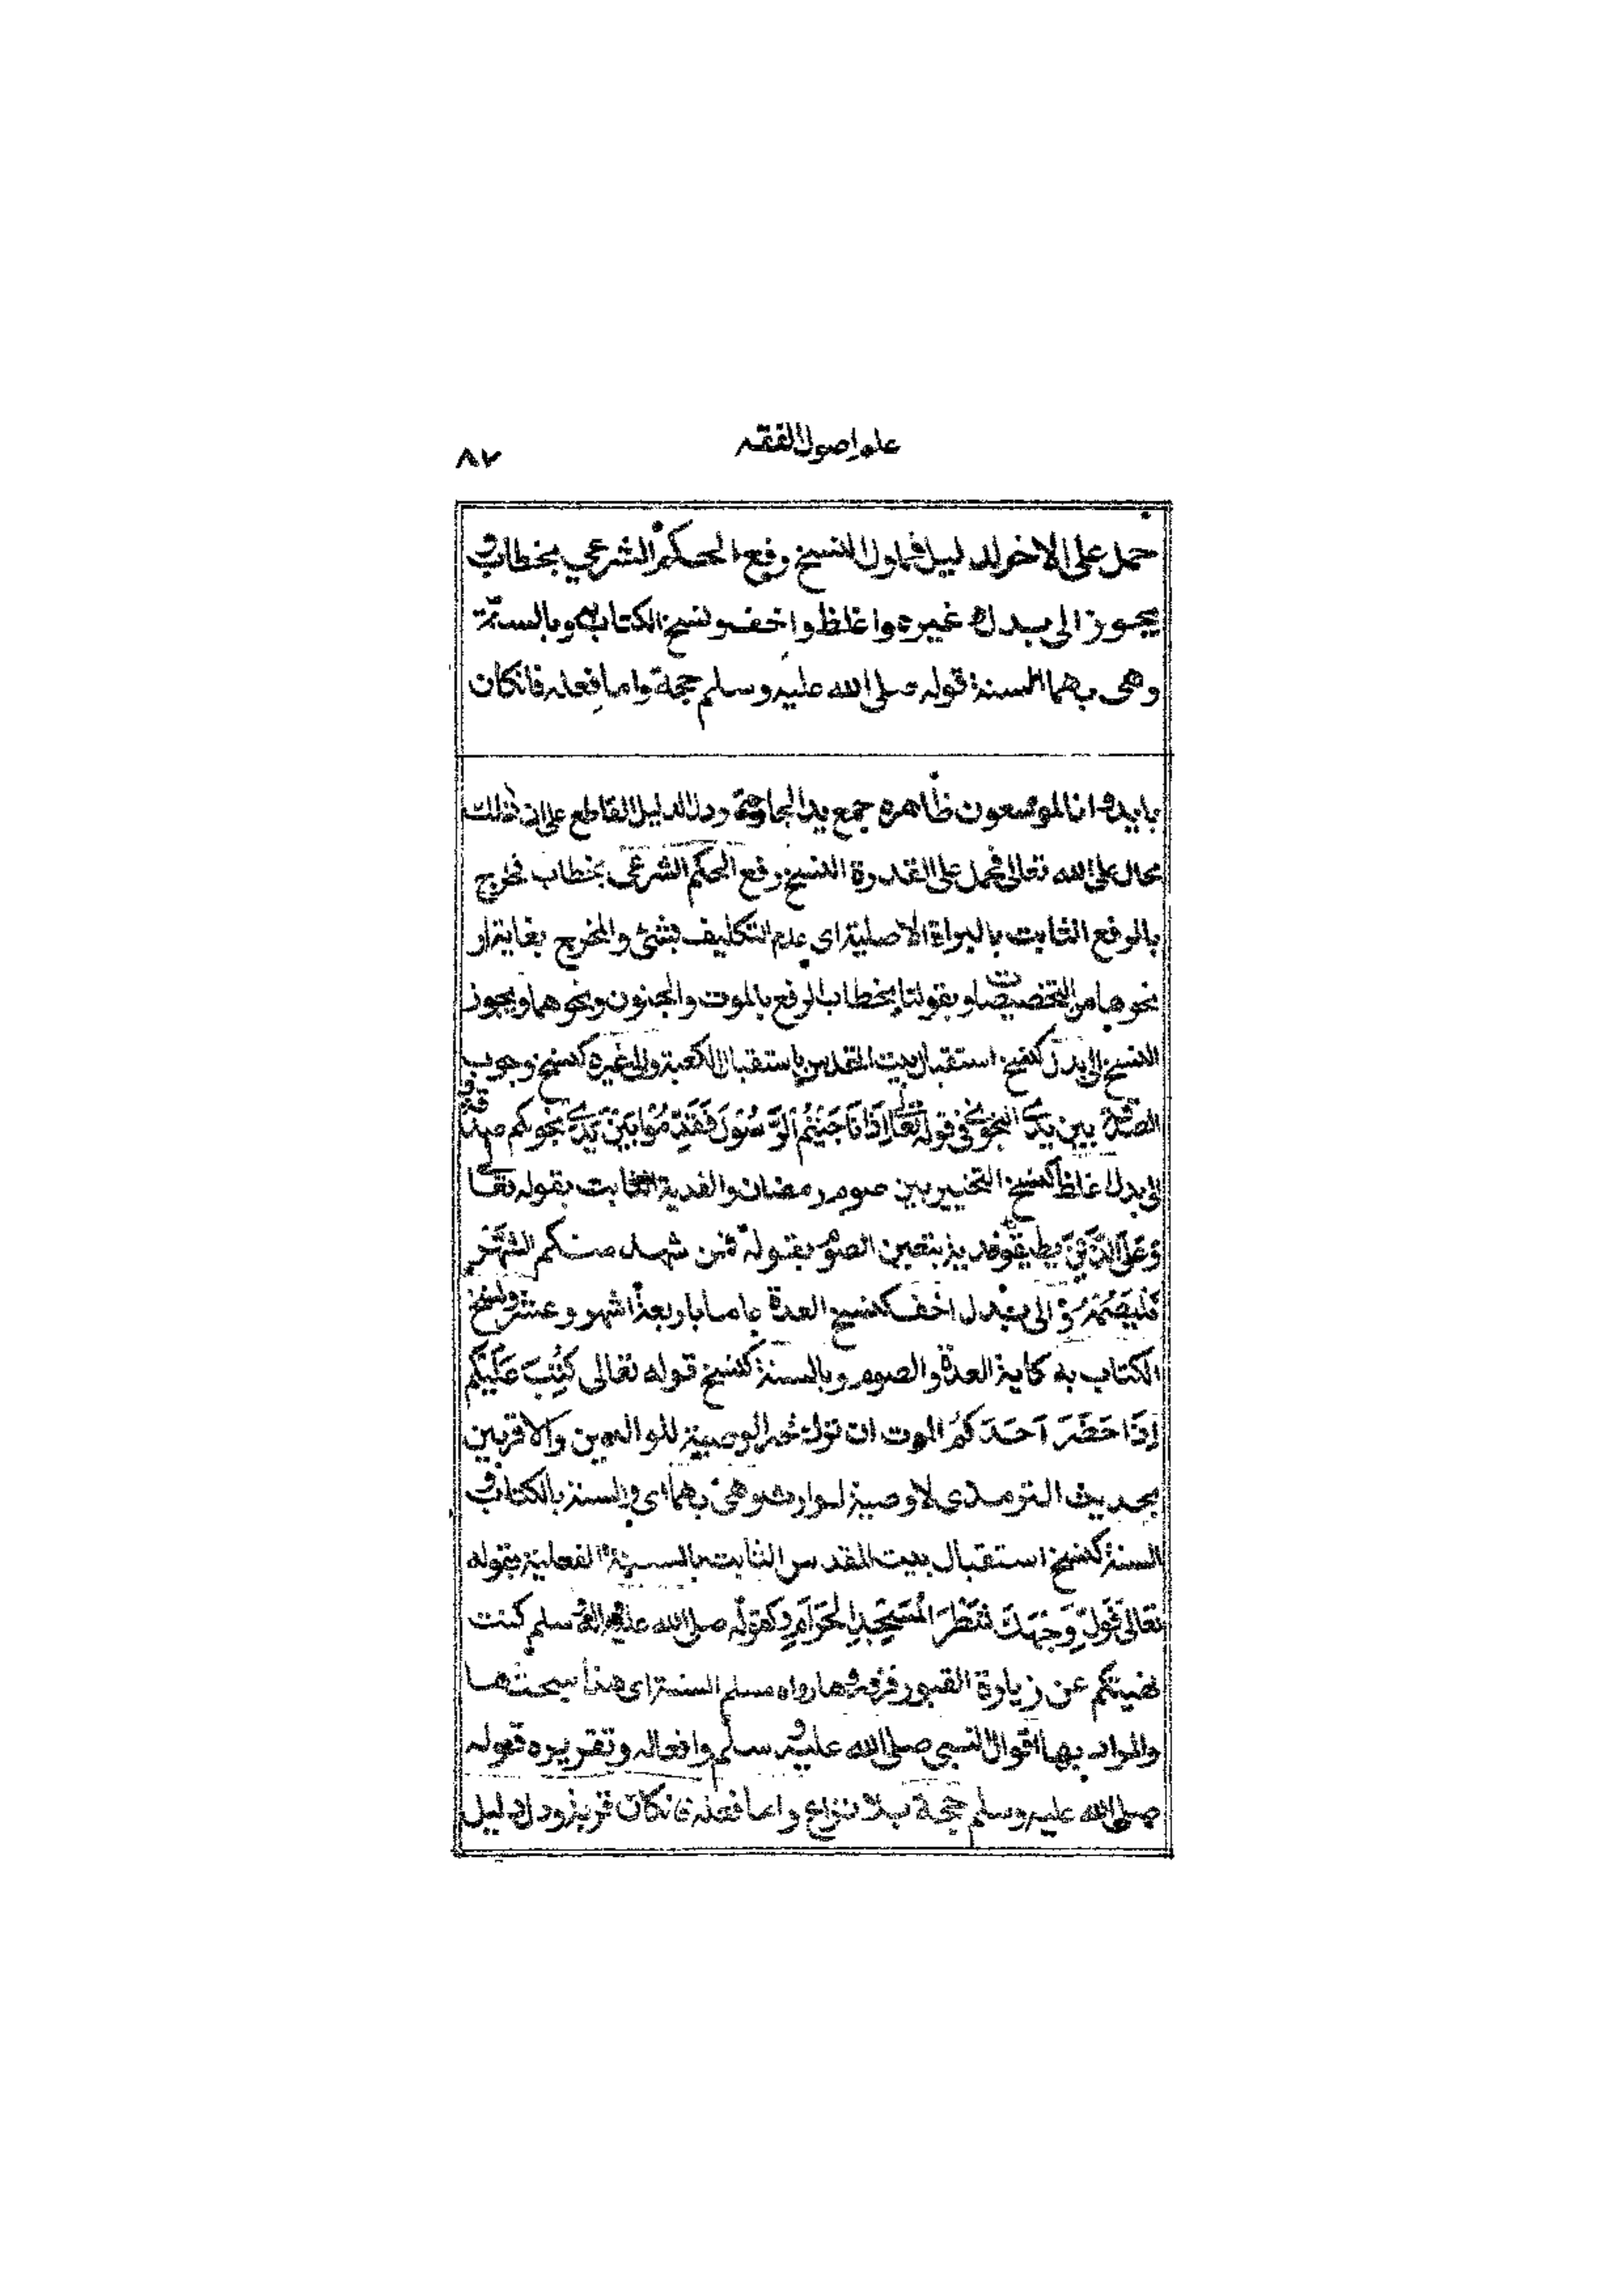 علم اصول الفقه
٨٧
حمل على الاخر لدليل فماول النسخ رفع الحكم الشرعي بخطاب و
يجوز الى بدل و غيره واغلظ واخف ونسخ الكتاب به وبالسنة
وهى بهما السنة قوله صلى الله عليه وسلم حجة واما فعله فانكان
بايد وانا لموسعون ظاهره جمع يد الجارحة ودل الدليل القاطع على ان ذلك
محال على الله تعالى فحمل على القدرة النسخ رفع الحكم الشرعى بخطاب فخرج
بالرفع الثابت بالبراءة الاصلية اى عدم التكليف بشئ والمخرج بغاية او
نحوها من التخصيصات و بقولنا بخطاب الرفع بالموت والجنون ونحوهما ويجوز
النسخ الى بدل كنسخ استقبال بيت المقدس باستقبال الكعبة والى غيره كنسخ وجوب
الصدقة بين يدى النجوى فى قوله تعالى اذا نَاجَيْتُمُ الرَّسُوْلَ فَقَدِّمُوْا بَيْنَ يَدَىْ نجوىكم صدقة و
الى بدل اغلظ كنسخ التخيير بين صوم رمضان والفدية الثابت بقوله تعالى
وَعَلَى الَّذِيْنَ يطيقونه فدية بتعين الصوم بقوله فمن شهد منكم الشَّهْر
فَلْيَصُمْهُ والى بدل اخف كنسخ العدة باما باربعة اشهر وعشر ونسخ
الكتاب به كاية العدة والصوم وبالسنة كنسخ قوله تعالى كُتِبَ عَلَيْكُم
اِذَا حَضَرَ اَحَدَكُمُ الموت ان ترك خير الوصية للوالدين والاقربين
بحديث الترمذى لا وصية لوارث وهى بهما اى والسنة بالكتاب و
السنة كنسخ استقبال بيت المقدس الثابت بالسنة الفعلية بقوله
تعالى فَوَلِّ وَجْهَكَ شَطْرَ الْمَسْجِدِ الْحَرَامِ وكقوله صلى الله عليه واله وسلم كنت
نهيتكم عن زيارة القبور فزوروها رواه مسلم السنة اى هذا مبحثها
والمراد بها اقوال النبى صلى الله عليه و سلم وافعاله وتقريره قوله
صلى الله عليه وسلم حجة بلا نزاع واما فعله فانكان قربة ودل دليل